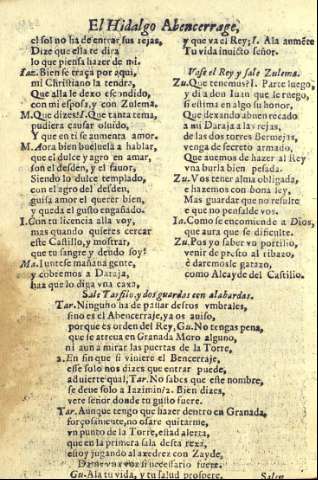 El Hidalgo Abencerrage,
el sol no ha de entrar sus rejas,
Dize que ella te dira
lo que piensa hazer de mi.
Iaz. Bien se traça por aqui,
mi Christiano la tendra,
Que alla le dexo escondido,
con mi esposa, y con Zulema.
M. Que dizes? I. Que tanta tema,
pudiera causar oluido,
Y que en ti se aumenta amor.
M. Aora bien bueluela a hablar,
que el dulce y agro en amar,
son el desden, y el fauor,
Siendo lo dulce templado,
con el agro del desden,
guisa amor el querer bien,
y queda el gusto engañado.
I. Con tu licencia alla voy,
mas quando quieres cercar
este Castillo, y mostrar,
que tu sangre y deudo soy?
Ma. Iuntese mañana gente,
y cobremos a Daraja,
haz que lo diga vna caxa,
y que va el Rey; I. Ala aumẽte
Tu vida inuicto señor.
Vase el Rey y sale Zulema.
Zu. Que tenemos? I. Parte luego,
y di a don Iuan que le ruego,
si estima en algo su honor,
Que dexando a buen recado
a mi Daraja a las rejas,
de las dos torres Bermejas,
venga de secreto armado,
Que auemos de hazer al Rey
vna burla bien pesada.
Zu. Vos tener alma obligada,
e hazemos con bona ley,
Mas guardar que no resulte
e que no pesalde vos.
Ia. Como se encomiende a Dios,
que aura que se dificulte.
Zu. Pos yo saber vn portilio,
venir de presto al ribazo,
e daremosle gatazo,
como Alcayde del Castilio.
Sale Tarfilo, y dos guardas con alabardas.
Tar. Ninguno ha de passar destos vmbrales,
sino es el Abencerraje, ya os auiso,
porque es orden del Rey, Gu. No tengas pena,
que se atreua en Granada Moro alguno,
ni aun a mirar las puertas de la Torre,
2. En fin que si viniere el Bencerraje,
esse solo nos dizes que entrar puede,
aduierte qual; Tar. No sabes que este nombre,
se deue solo a Iazimin? 2. Bien dizes,
vere señor donde tu gusto fuere.
Tar. Aunque tengo que hazer dentro en Granada,
forçosamente, no osare quitarme,
vn punto de la Torre, estad alerta,
que en la primera sala desta rexa,
estoy jugando al axedrez con Zayde,
Dame vna voz si necessario fuere.
Gu. Ala tu vida, y tu salud prospere.
Salen